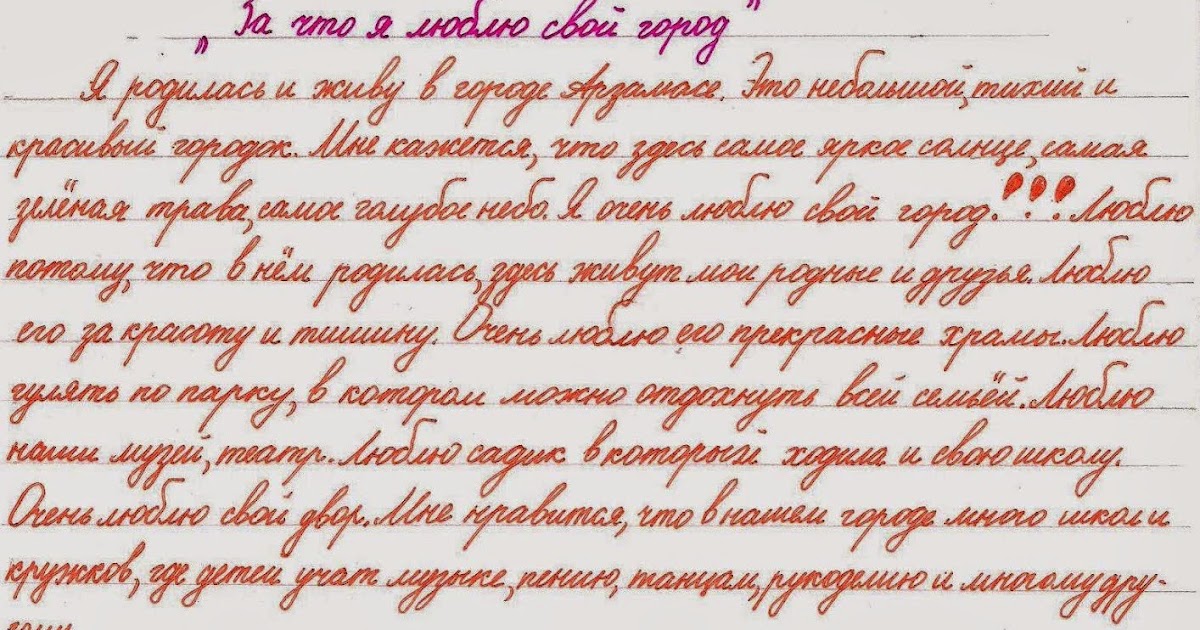 „За что я люблю свой город"
Я родилась и живу в городе Арзамасе. Это небольшой, тихий и
красивый городок. Мне кажется, что здесь самое яркое солнце, самая
зелёная трава, самое голубое небо. Я очень люблю свой город!!! Люблю
потому, что в нём родилась, здесь живут мои родные и друзья. Люблю
его за красоту и тишину. Очень люблю его прекрасные храмы. Люблю
гулять по парку, в котором можно отдохнуть всей семьёй. Люблю
наши музей, театр. Люблю садик в который ходила и свою школу.
Очень люблю свой двор. Мне нравится, что в нашем городе много школ и
кружков, где детей учат музыке, пению, танцам, рукоделию и многому дру-